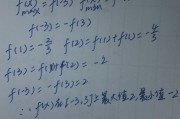 f(x)max = f(-3) f(x)min = f(3)
f(-3) = -f(3)
f(1) = -2/3 f(2) = f(1) + f(1) = -4/3
f(3) = f(1)+f(2) = -2
f(-3) = -f(3) = 2
∴ f(x)在[-3,3]上最大值2,最小值-2